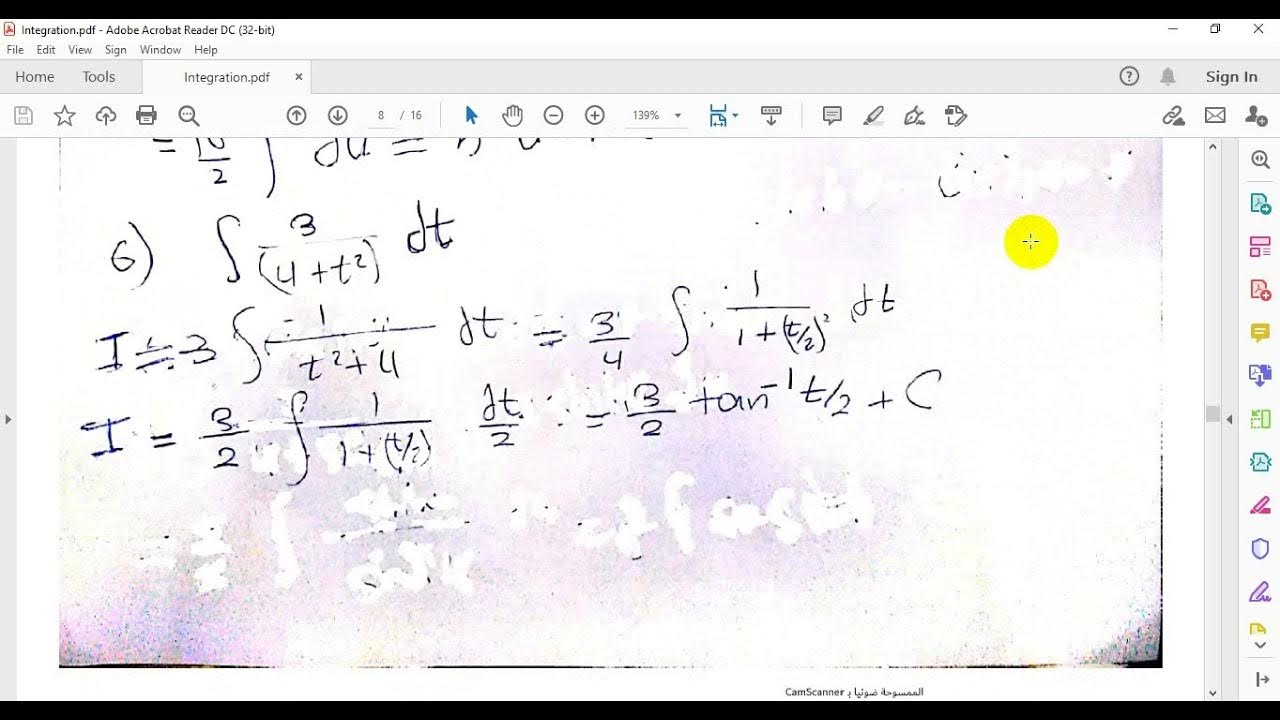 Integration.pdf - Adobe Acrobat Reader DC (32-bit)
File Edit View Sign Window Help
Home Tools Integration.pdf × Sign In
8 / 16 139%
6) ∫ 3/(4+t²) dt
I = 3 ∫ 1/(t²+4) dt = 3/4 ∫ 1/(1+(t/2)²) dt
I = 3/2 ∫ 1/(1+(t/2)) dt/2 = 3/2 tan⁻¹ t/2 + C
الممسوحة ضوئيا بـ CamScanner